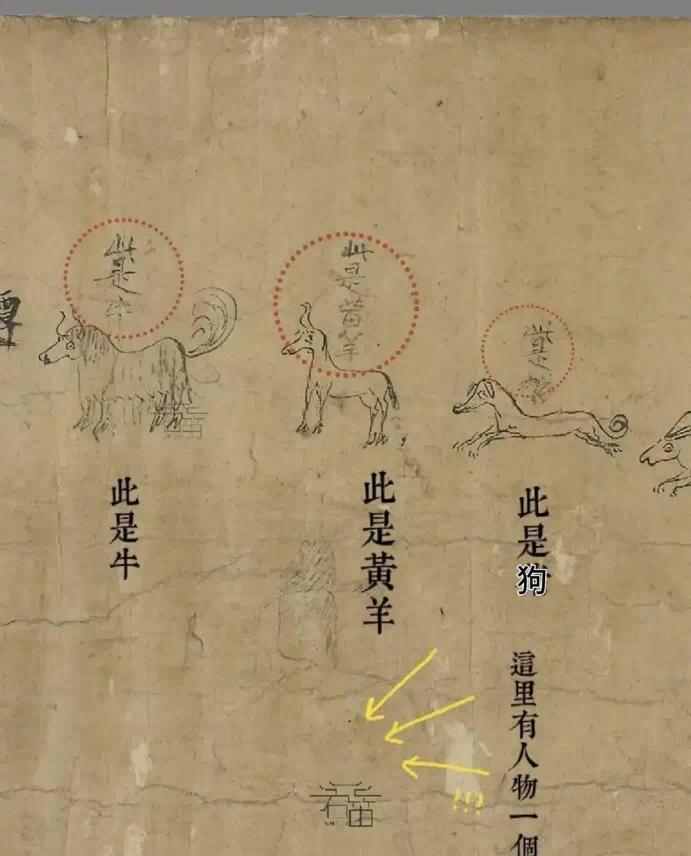 此是
此是黃羊
此是牛
此是狗
此是黃羊
此是牛
這里有人物一個
!!!